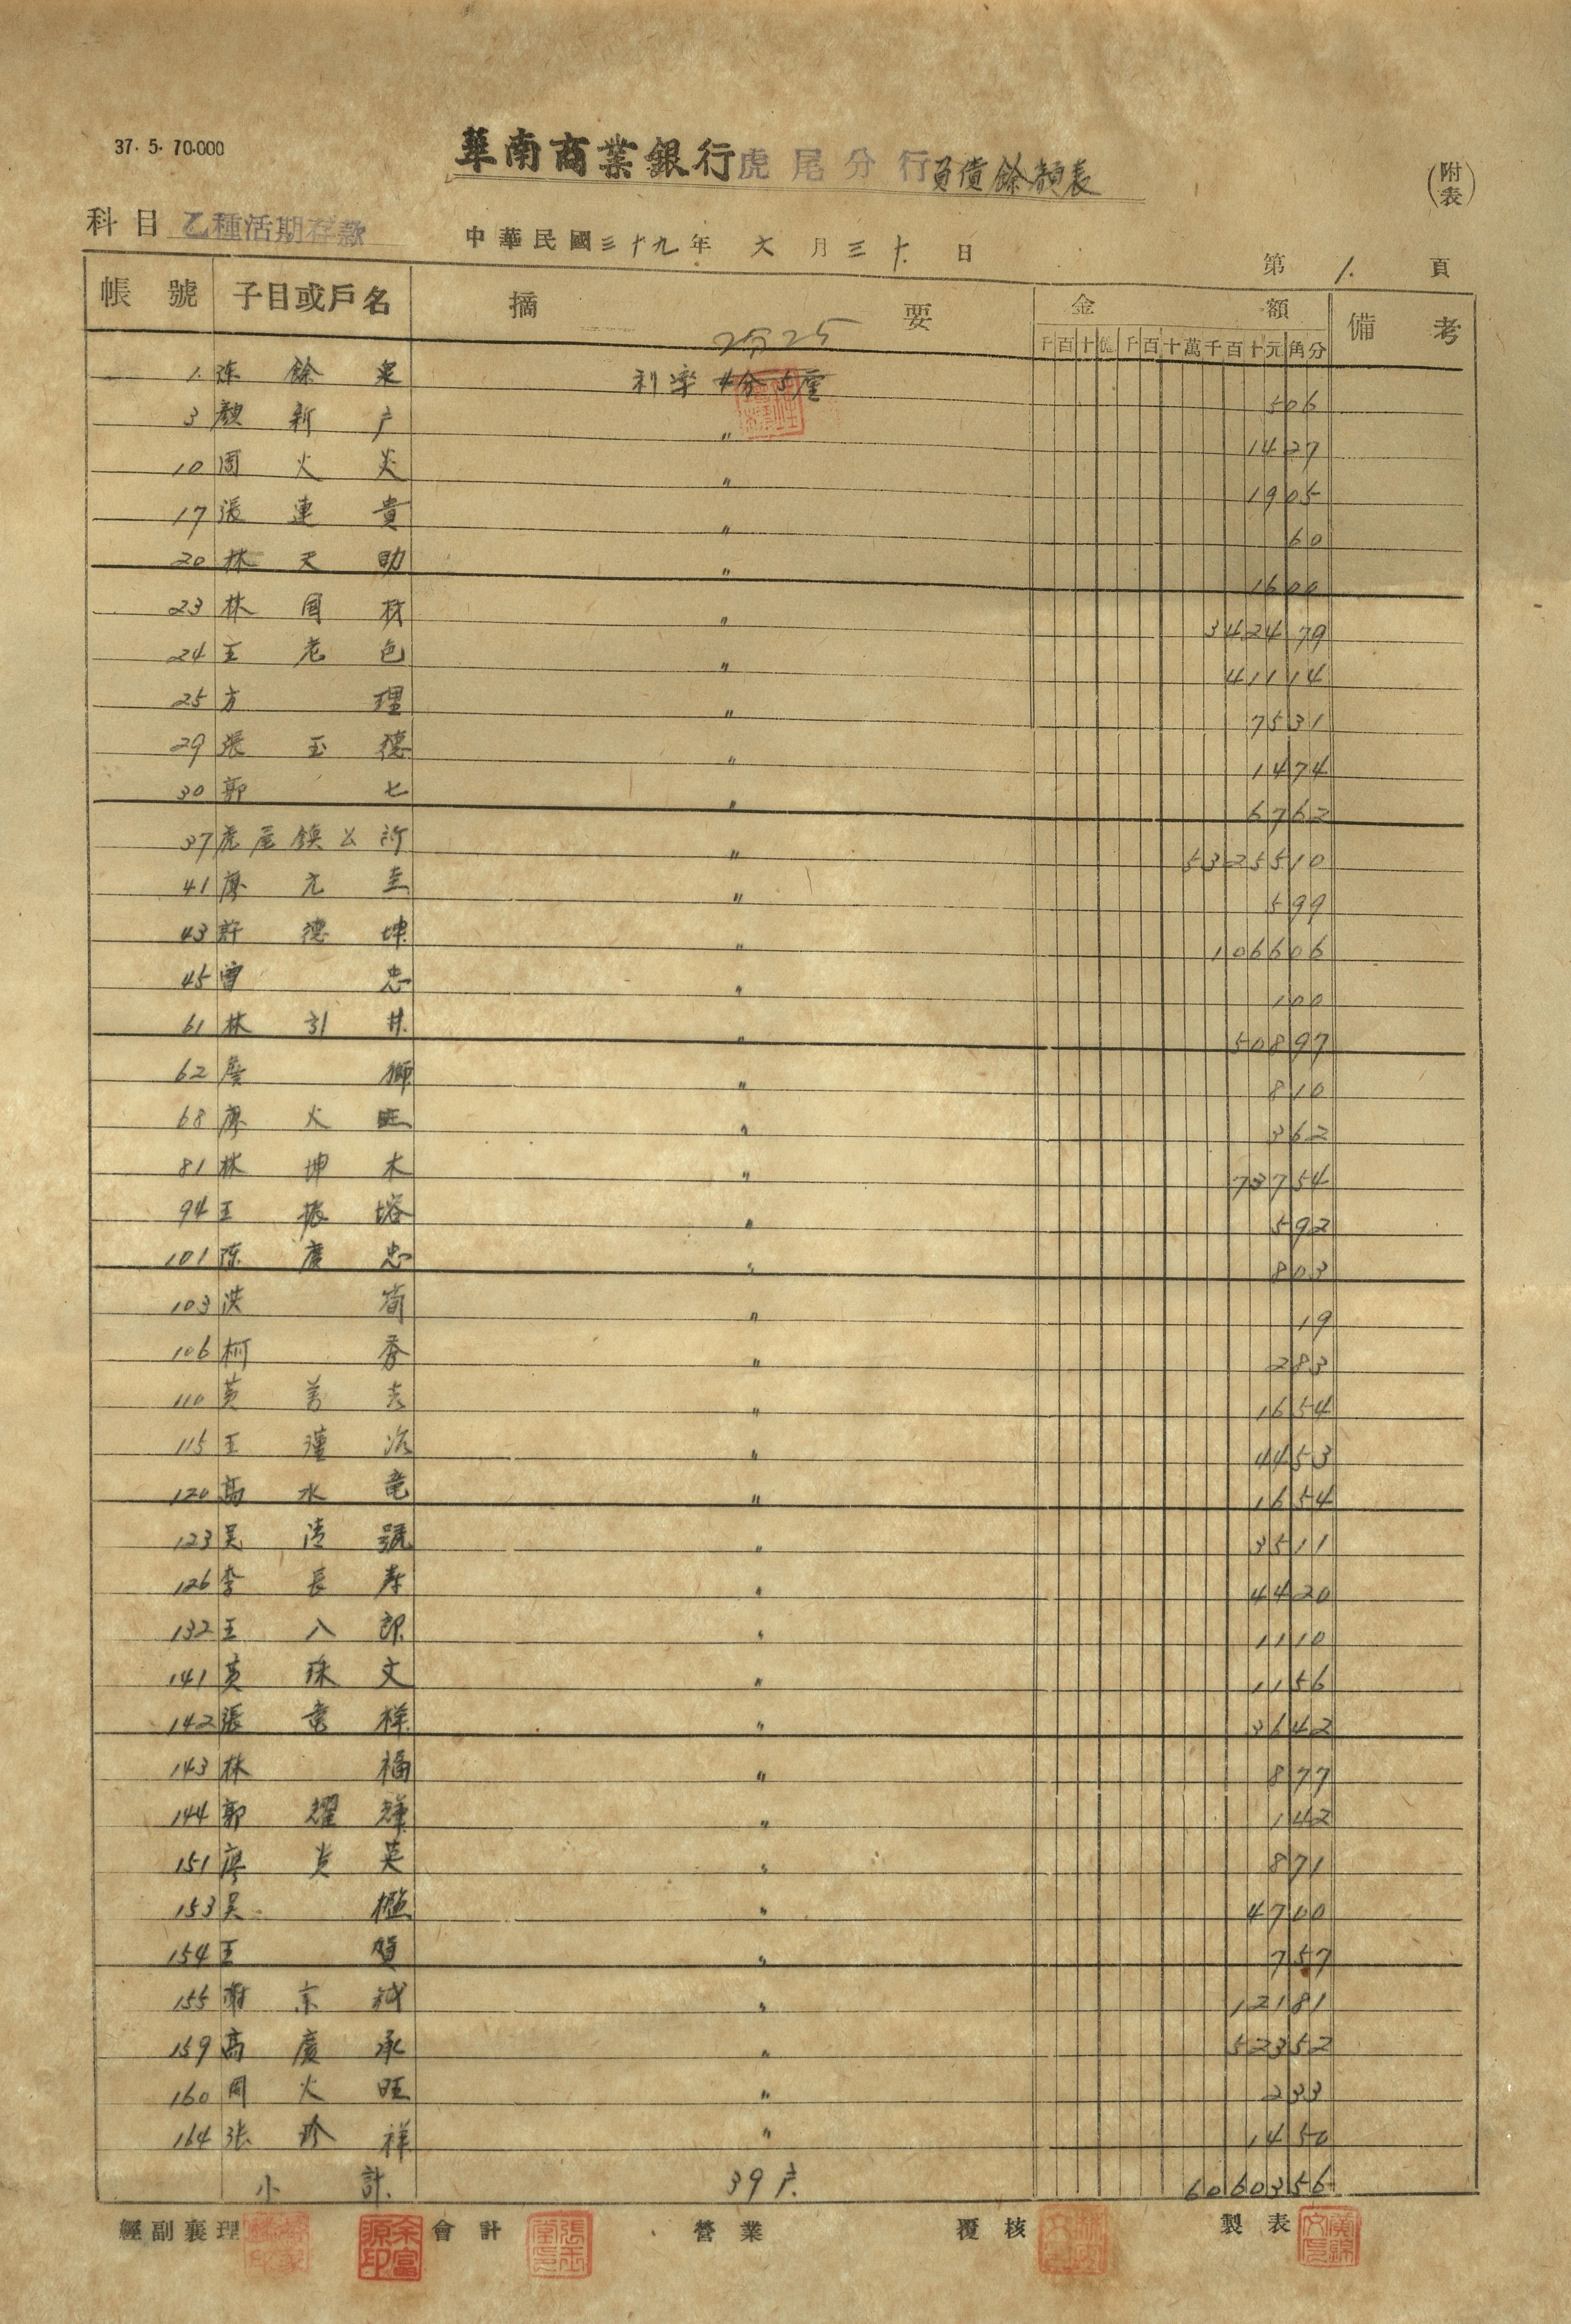 37. 5. 70.000
華南商業銀行虎尾分行負債餘額表
(附表)
科目 乙種活期存款
中華民國三十九年 六月三十日
第 1. 頁
帳號 子目或戶名 摘要 金額 備考
千百十億千百十萬千百十元角分
2分25
1. 陈餘 利率 4分5厘 506
3 顏新户 〃 1427
10 周火炎 〃 1905
17 張連貴 〃 60
20 林天助 〃 1600
23 林國材 〃 342479
24 王老色 〃 41114
25 方理 〃 7531
29 張玉德 〃 1474
30 郭七 〃 6762
37 虎尾鎮公所 〃 5325510
41 廖元圭 〃 599
43 許德坤 〃 106606
45 曾忠 〃 100
61 林引井 〃 50897
62 詹獅 〃 810
68 廖火旺 〃 362
81 林坤木 〃 73754
94 王振塔 〃 592
101 陈慶忠 〃 803
103 洪 〃 19
106 柯香 〃 283
110 黃 〃 1654
115 王 〃 4453
120 高水竜 〃 1654
123 吴清號 〃 3511
126 李長寿 〃 4420
132 王八郎 〃 1110
141 黄珠文 〃 1156
142 張 祥 〃 3642
143 林福 〃 877
144 郭耀輝 〃 142
151 廖黄英 〃 871
153 吴 〃 4700
154 王 〃 757
155 謝京 〃 12181
159 高慶承 〃 52352
160 周火旺 〃 233
164 张珍祥 〃 1450
小計 39户 6060356
經副襄理 會計 營業 覆核 製表
余富源印